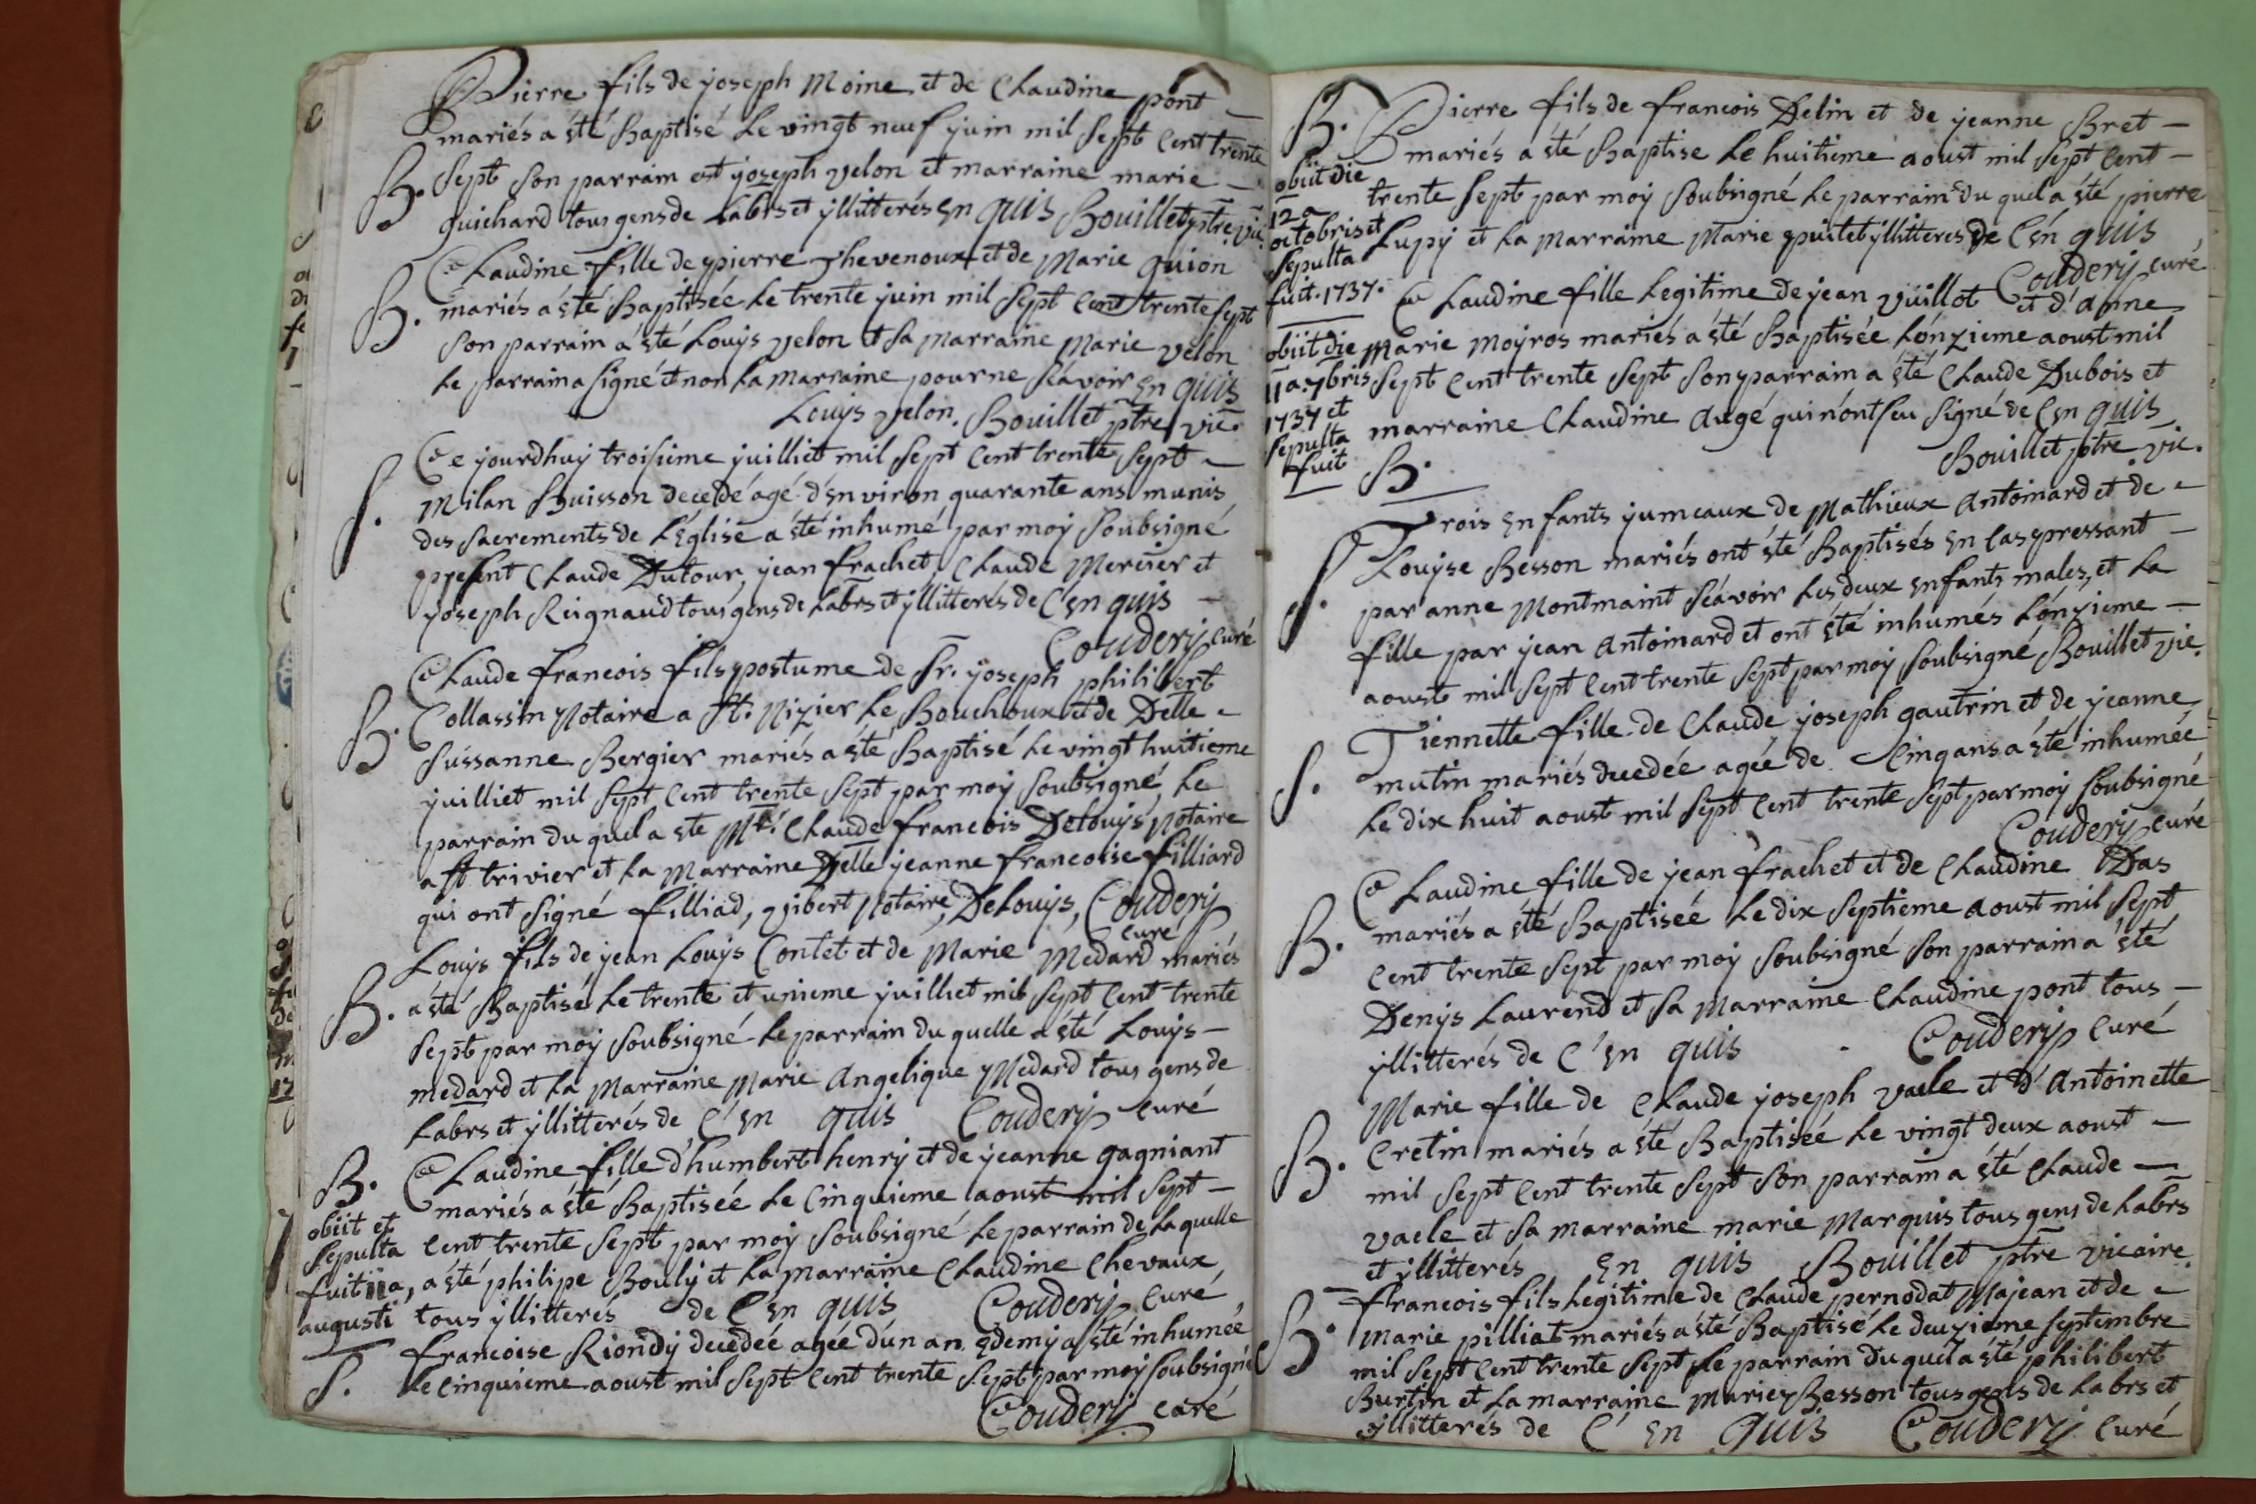 Pierre fils de joseph Moine et de Claudine pont
mariés a êté Baptisé Le vingt neuf juin mil Sept Cent trente
B. Sept Son parrain est joseph velon et marraine marie
guichard tous gens de Labrs et yllitterés En quis Bouillet ptre vic.
Claudine fille de pierre Thevenoux et de Marie guion
B. mariés a êté Baptisée Le trente juin mil Sept Cent trente Sept
Son parrain a êté Louys velon et Sa Marraine Marie velon
Le parrain a Signé et non La Marraine pour ne Sçavoir En quis
Louys velon. Bouillet ptre vic.
Ce jourdhuy troisieme juilliet mil Sept Cent trente Sept
S. Milan Buisson decedé agé d'Environ quarante ans munis
des sacrements de L'Eglise a êté inhumé par moy Soubsigné
present Claude Dutour, jean frachet, Claude Mercier et
joseph Reignaud tous gens de Labrs et yllitterés de C'En quis
Couderij curé
Claude francois fils postume de Sr. joseph philibert
B. Collassin Notaire a St. Nizier Le Bouchoux et de Delle
Sussanne Bergier mariés a êté Baptisé Le vingt huitieme
juilliet mil Sept Cent trente Sept par moy Soubsigné Le
parrain du quel a ste Mtr. Claude francois Delouys Notaire
a St trivier et La Marraine Delle jeanne francoise filliard
qui ont Signé filliad, gibert Notaire, Delouys, Couderij
curé
Louys fils de jean Louys Contet et de Marie Medard mariés
B. a êté Baptisé Le trente et unieme juilliet mil Sept Cent trente
Sept par moy Soubsigné Le parrain du quelle a êté Louys
medard et La Marraine Marie Angelique Medard tous gens de
Labrs et yllitterés de C'En quis Couderij Curé
B. Claudine fille d'humbert henry et de jeanne gagniant
mariés a êté Baptisée Le Cinquieme aoust mil Sept
Cent trente Sept par moy Soubsigné Le parrain de Laquelle
a êté philipe Bouly et La Marraine Claudine Chevaux
tous yllitterés de C'En quis Couderij Curé
obiit et
Sepulta
fuit 11a,
augusti
francoise Riondy decedée agée d'un an & demy a êté inhumée
S. Le Cinquieme aoust mil Sept Cent trente Sept par moy Soubsigné
Couderij curé
B. Pierre fils de francois Delin et de jeanne Bret
mariés a êté Baptise Le huitieme aoust mil Sept Cent
trente Sept par moy Soubsigné Le parrain du quel a êté pierre
Lupy et La Marraine Marie puitet yllitteres de C'En quis
Couderij curé
obiit die
12a
octobris et
Sepulta
fuit. 1737.
Claudine fille Legitime de jean vüillot et d'Anne
Marie Moyros mariés a êté Baptisée L'onzieme aoust mil
Sept Cent trente Sept Son parrain a êté Claude Dubois et
marraine Claudine Augé qui n'ont Sçu Signé de C'En quis
Bouillet ptre vic.
obiit die
11a 7bris
1737 et
Sepulta
fuit
B.
Trois Enfants jumeaux de Mathieux Antoinard et de
Louyse Besson mariés ont êté Baptisés En Cas pressant
S. par anne Montmaint Sçavoir Les deux Enfants males, et La
fille par jean Antoinard et ont êté inhumés L'onzieme
aoust mil Sept Cent trente Sept par moy Soubsigné Bouillet vic.
Tiennette fille de Claude joseph gautrin et de jeanne
S. mutin mariés decedée agée de Cinq ans a êté inhumée
Le dix huit aoust mil Sept Cent trente Sept par moy Soubsigné
Couderij curé
Claudine fille de jean frachet et de Claudine Das
B. mariés a êté Baptisée Le dix Septieme aoust mil Sept
Cent trente Sept par moy Soubsigné Son parrain a êté
Denys Laurend et Sa Marraine Claudine pont tous
yllitterés de C'En quis Couderij Curé
Marie fille de Claude joseph vacle et d'Antoinette
B. Cretin mariés a êté Baptisée Le vingt deux aoust
mil Sept Cent trente Sept Son parrain a êté Claude
vacle et Sa marraine marie Marquis tous gens de Labrs
et yllitterés En quis Bouillet ptre vicaire
francois fils Legitime de Claude pernodat Majean et de
B. Marie pilliat mariés a êté Baptisé Le deuzieme Septembre
mil Sept Cent trente Sept Le parrain du quel a êté philibert
Burtin et La marraine Marie Besson tous gens de Labrs et
yllitterés de C'En quis Couderij Curé